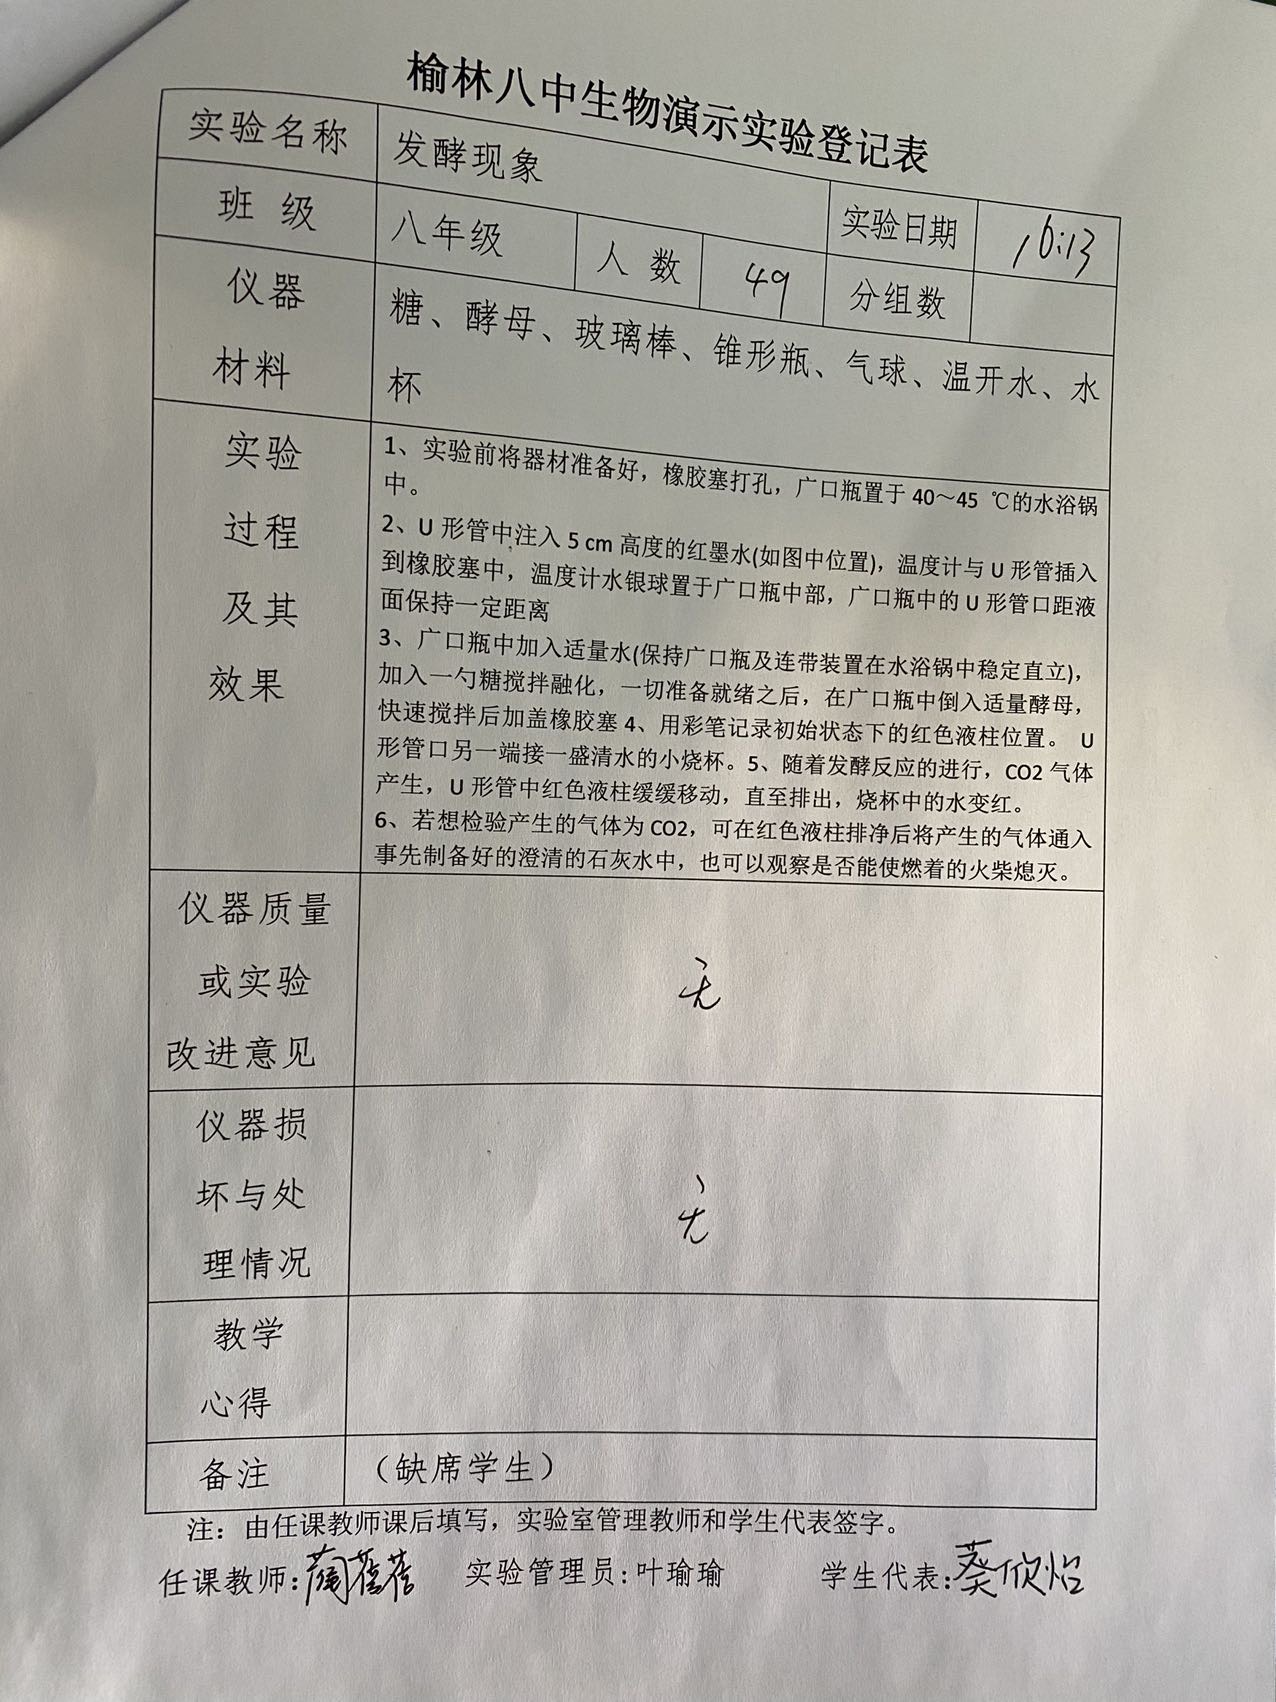 榆林八中生物演示实验登记表
实验名称 发酵现象 实验日期 16:13
班 级 八年级 人 数 49 分组数
仪器 糖、酵母、玻璃棒、锥形瓶、气球、温开水、水
材料 杯
实验
过程
及其
效果
1、实验前将器材准备好，橡胶塞打孔，广口瓶置于 40～45 ℃的水浴锅
中。
2、U 形管中注入 5 cm 高度的红墨水(如图中位置)，温度计与 U 形管插入
到橡胶塞中，温度计水银球置于广口瓶中部，广口瓶中的 U 形管口距液
面保持一定距离
3、广口瓶中加入适量水(保持广口瓶及连带装置在水浴锅中稳定直立)，
加入一勺糖搅拌融化，一切准备就绪之后，在广口瓶中倒入适量酵母，
快速搅拌后加盖橡胶塞 4、用彩笔记录初始状态下的红色液柱位置。 U
形管口另一端接一盛清水的小烧杯。5、随着发酵反应的进行，CO2 气体
产生，U 形管中红色液柱缓缓移动，直至排出，烧杯中的水变红。
6、若想检验产生的气体为 CO2，可在红色液柱排净后将产生的气体通入
事先制备好的澄清的石灰水中，也可以观察是否能使燃着的火柴熄灭。
仪器质量
或实验 无
改进意见
仪器损
坏与处 无
理情况
教学
心得
备注 （缺席学生）
注：由任课教师课后填写，实验室管理教师和学生代表签字。
任课教师: 蓓蓓 实验管理员:叶瑜瑜 学生代表: 欣怡